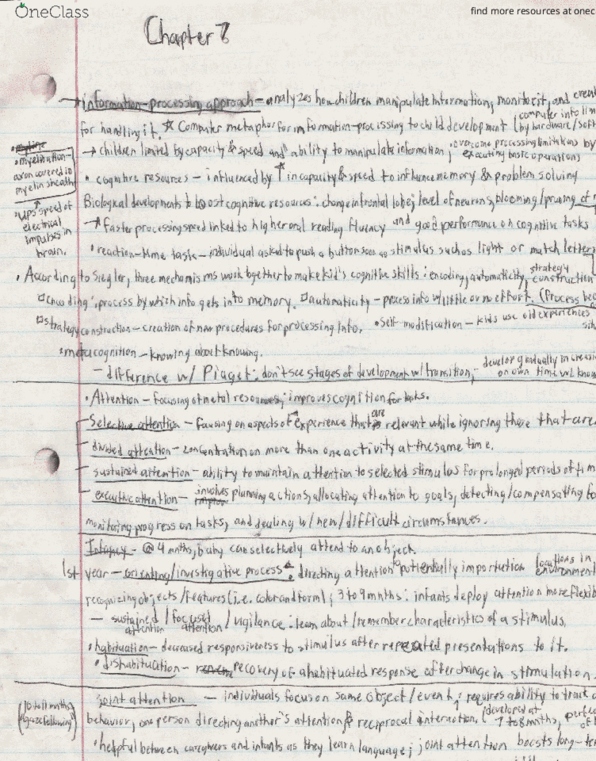 OneClass
find more resources at onec
Chapter 8
→ information-processing approach - analyzes how children manipulate information, monitor it, and creat
for handling it. * Computer metaphor for information-processing to child development (by hardware/soft
computer into lim
→ children limited by capacity & speed and ability to manipulate information; overcome processing limitations by
executing basic operations)
• cognitive resources - influenced by ↑ in capacity & speed to influence memory & problem solving
• myelination -
axon covered in
myelin sheath
↑
ups speed of
electrical
impulses in
brain.
Biological developments to boost cognitive resources: change in frontal lobe; level of neurins, blooming/pruning of
* Faster processing speed linked to higher oral reading fluency and good performance on cognitive tasks
• reaction-time task - individual asked to push a button soon as stimulus such as light or match letter
• According to Siegler, three mechanisms work together to make kid's cognitive skills: encoding, automaticity, strategy construction
□ encoding: process by which info gets into memory. □ automaticity - process info w/ little or no effort. (Process
□ strategy construction - creation of new procedures for processing info. • self-modification - kids use old experiences
• metacognition - knowing about knowing.
- difference w/ Piaget: don't see stages of development w/ transition; develop gradually in
on own time w/
• Attention - focusing of metal resources; improves cognition for tasks.
selective attention - focusing on aspects of experience that are relevant while ignoring those that are
divided attention - concentration on more than one activity at the same time.
sustained attention - ability to maintain attention to selected stimulus for prolonged periods of tim
executive attention - involves planning actions, allocating attention to goals, detecting/compensating fo
monitoring progress on tasks, and dealing w/ new/difficult circumstances.
Infancy - @ 4 mnths, baby can selectively attend to an object.
1st year - orienting/investigative process: directing attention to potientially importation locations in
environment
recognizing objects/features (i.e. color and form); 3 to 9 mnths: infants deploy attention more flexib
- sustained attention / focused attention / vigilance: learn about/remember characteristics of a stimulus.
• habituation - decreased responsiveness to stimulus after repeated presentations to it.
• dishabituation - recovery of a habituated response after change in stimulation.
joint attention - individuals focus on same object/event; requires ability to track
(10 to 11 mnths,
gaze following)
behavior, one person directing another's attention & reciprocal interaction, (developed at
7 to 8 mnths,
• helpful between caregivers and infants as they learn language; joint attention boosts long-te